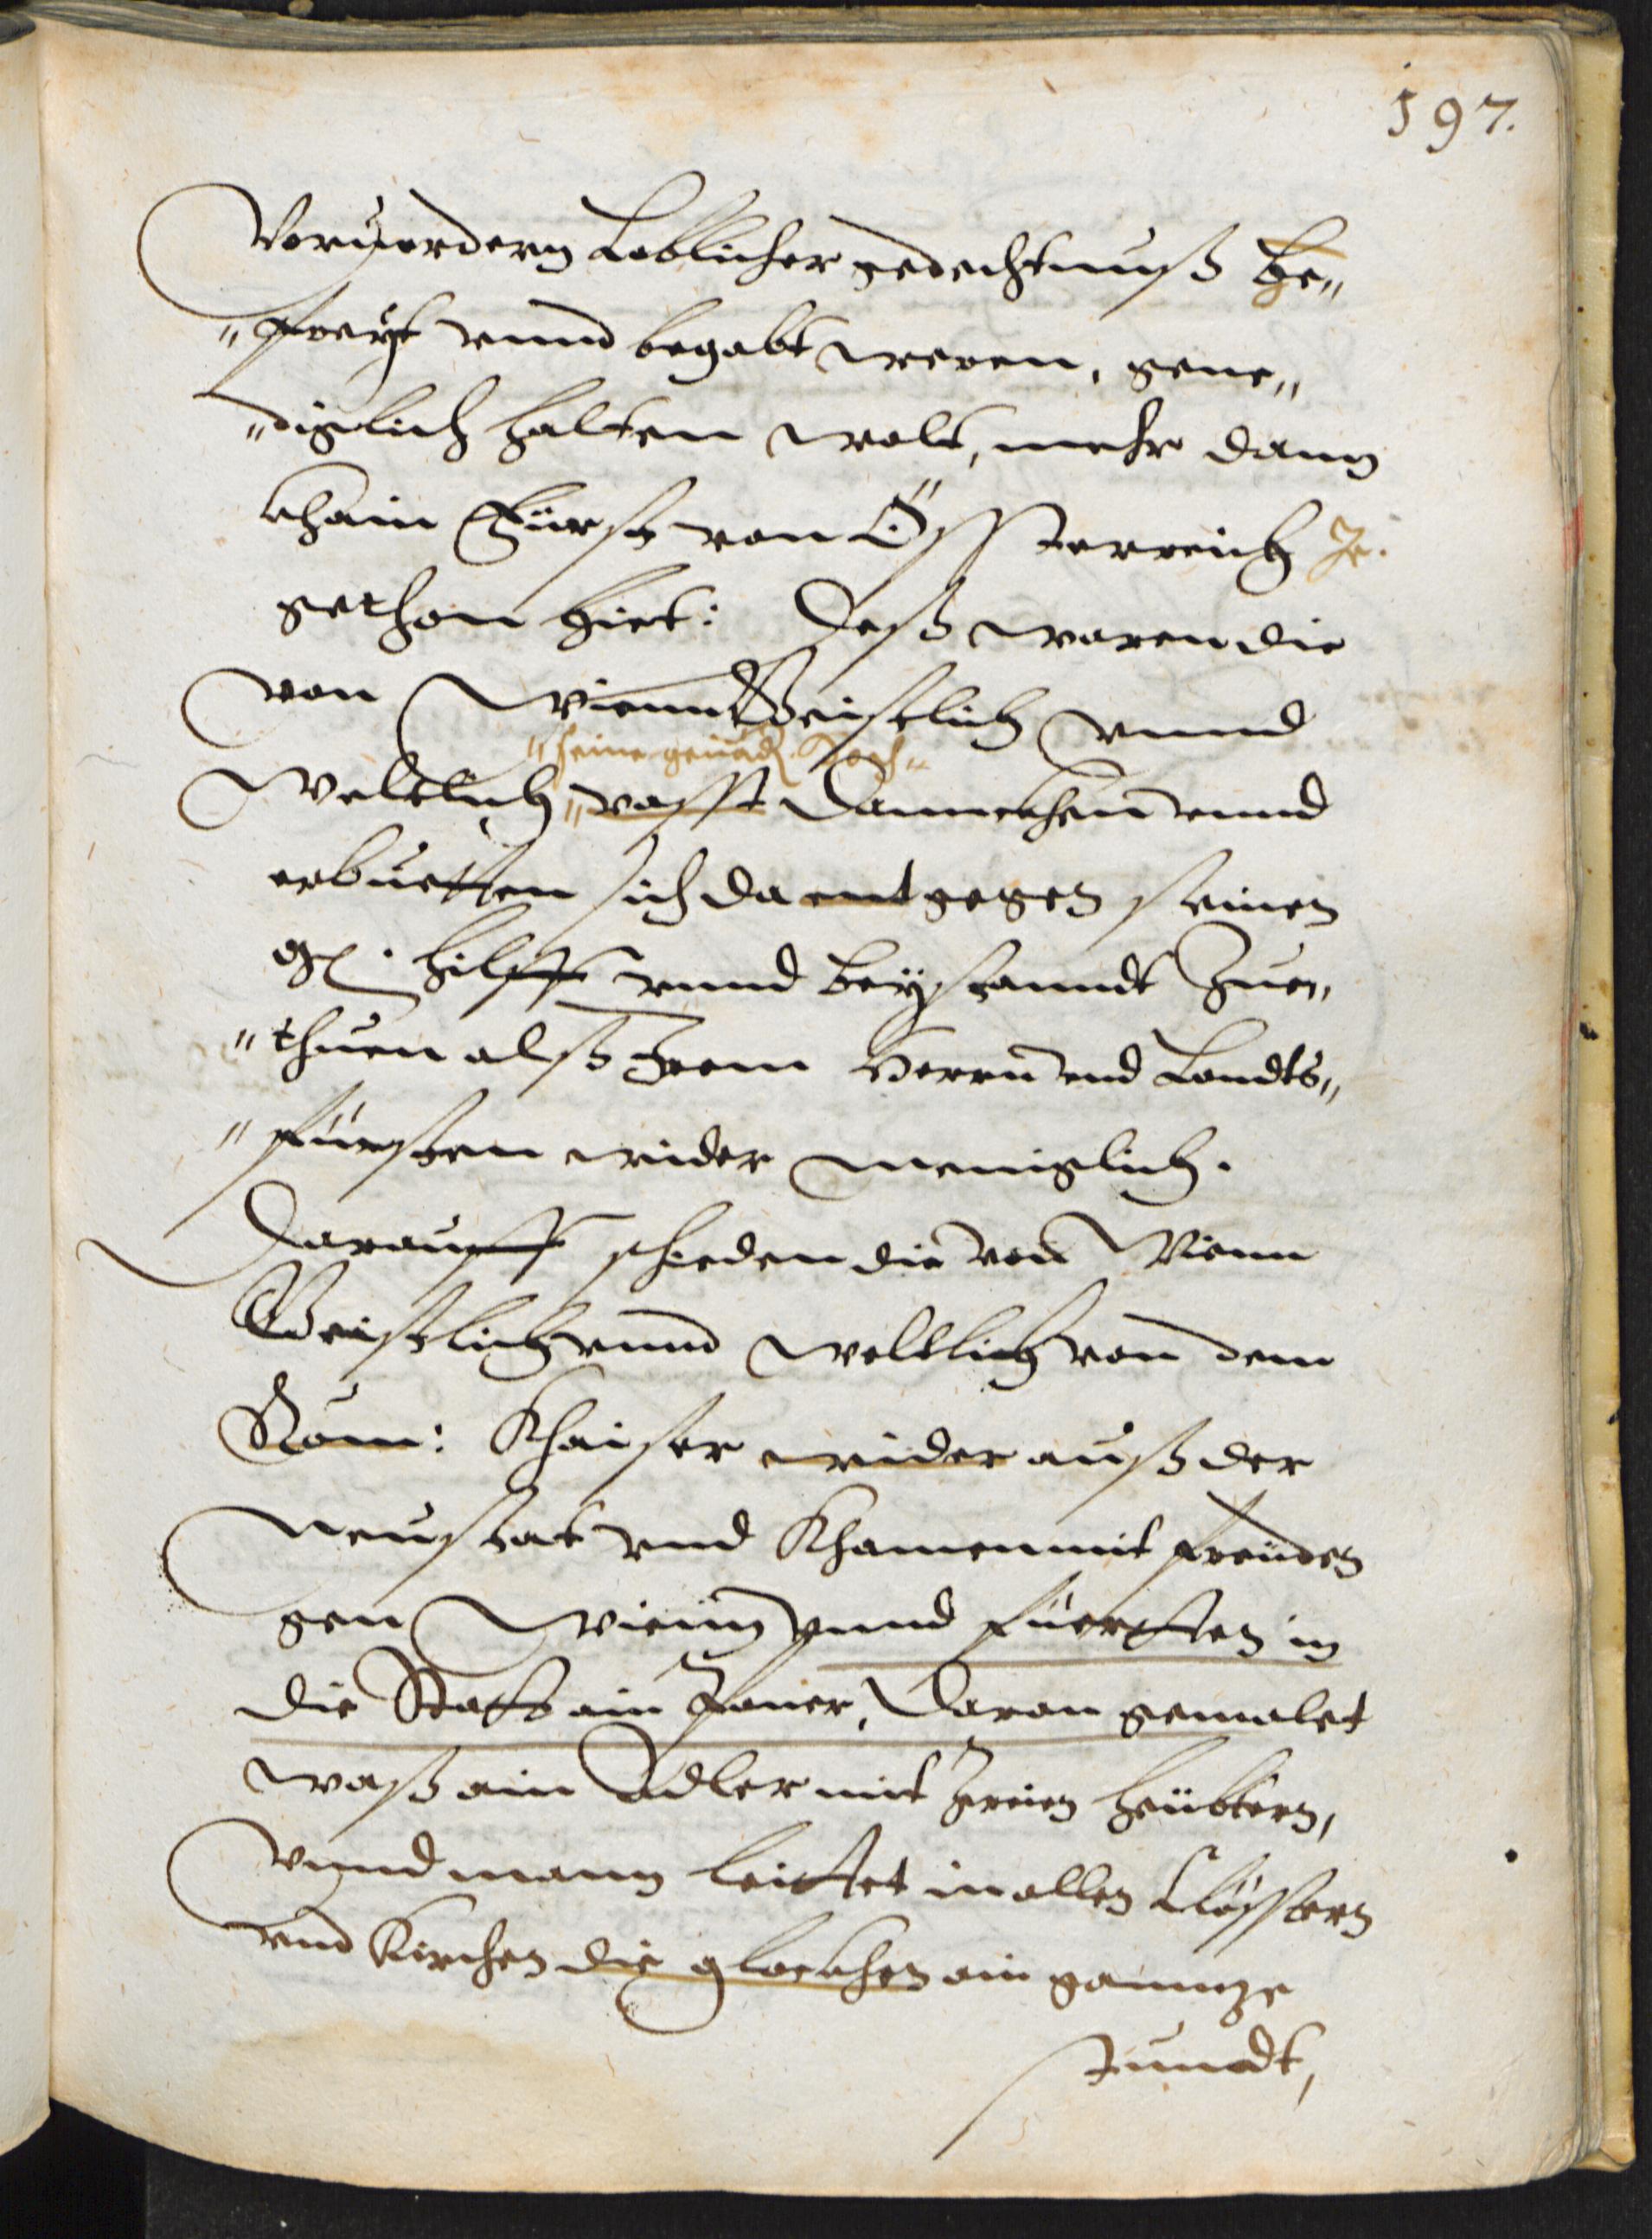 597.
Voruordern Loblicher gedechtnuß be„
„freyt vnnd begabt weren, gene„
„diglich halten wolt, mehr dann
khain Fürst von Össterreich Je.
gethon hiet: Deß waren die
von Wienn Geistlich vnnd
„seine genad. hoch„
weltlich „vasst Dannckhen vnnd
erbuetten sich da entgegen seinen
gl. hilff vnnd beystanndt Zue„
„thuen alß Irem Herrn vnd Landts„
„fürsten wider meniglich.
Darauff schieden die von Wienn
Geistlich vnnd weltlich von dem
Röm: Khaiser wider auß der
Neustat vnd Khamen mit freuden
gen Wienn vnnd füerten in
die Statt ain Paner, Daran gemalet
waß ain Adler mit Zwien heübtern,
vnnd mann leittet in allen Clösstern
vnd Kirchen die glockhen ain gannze
stundt,